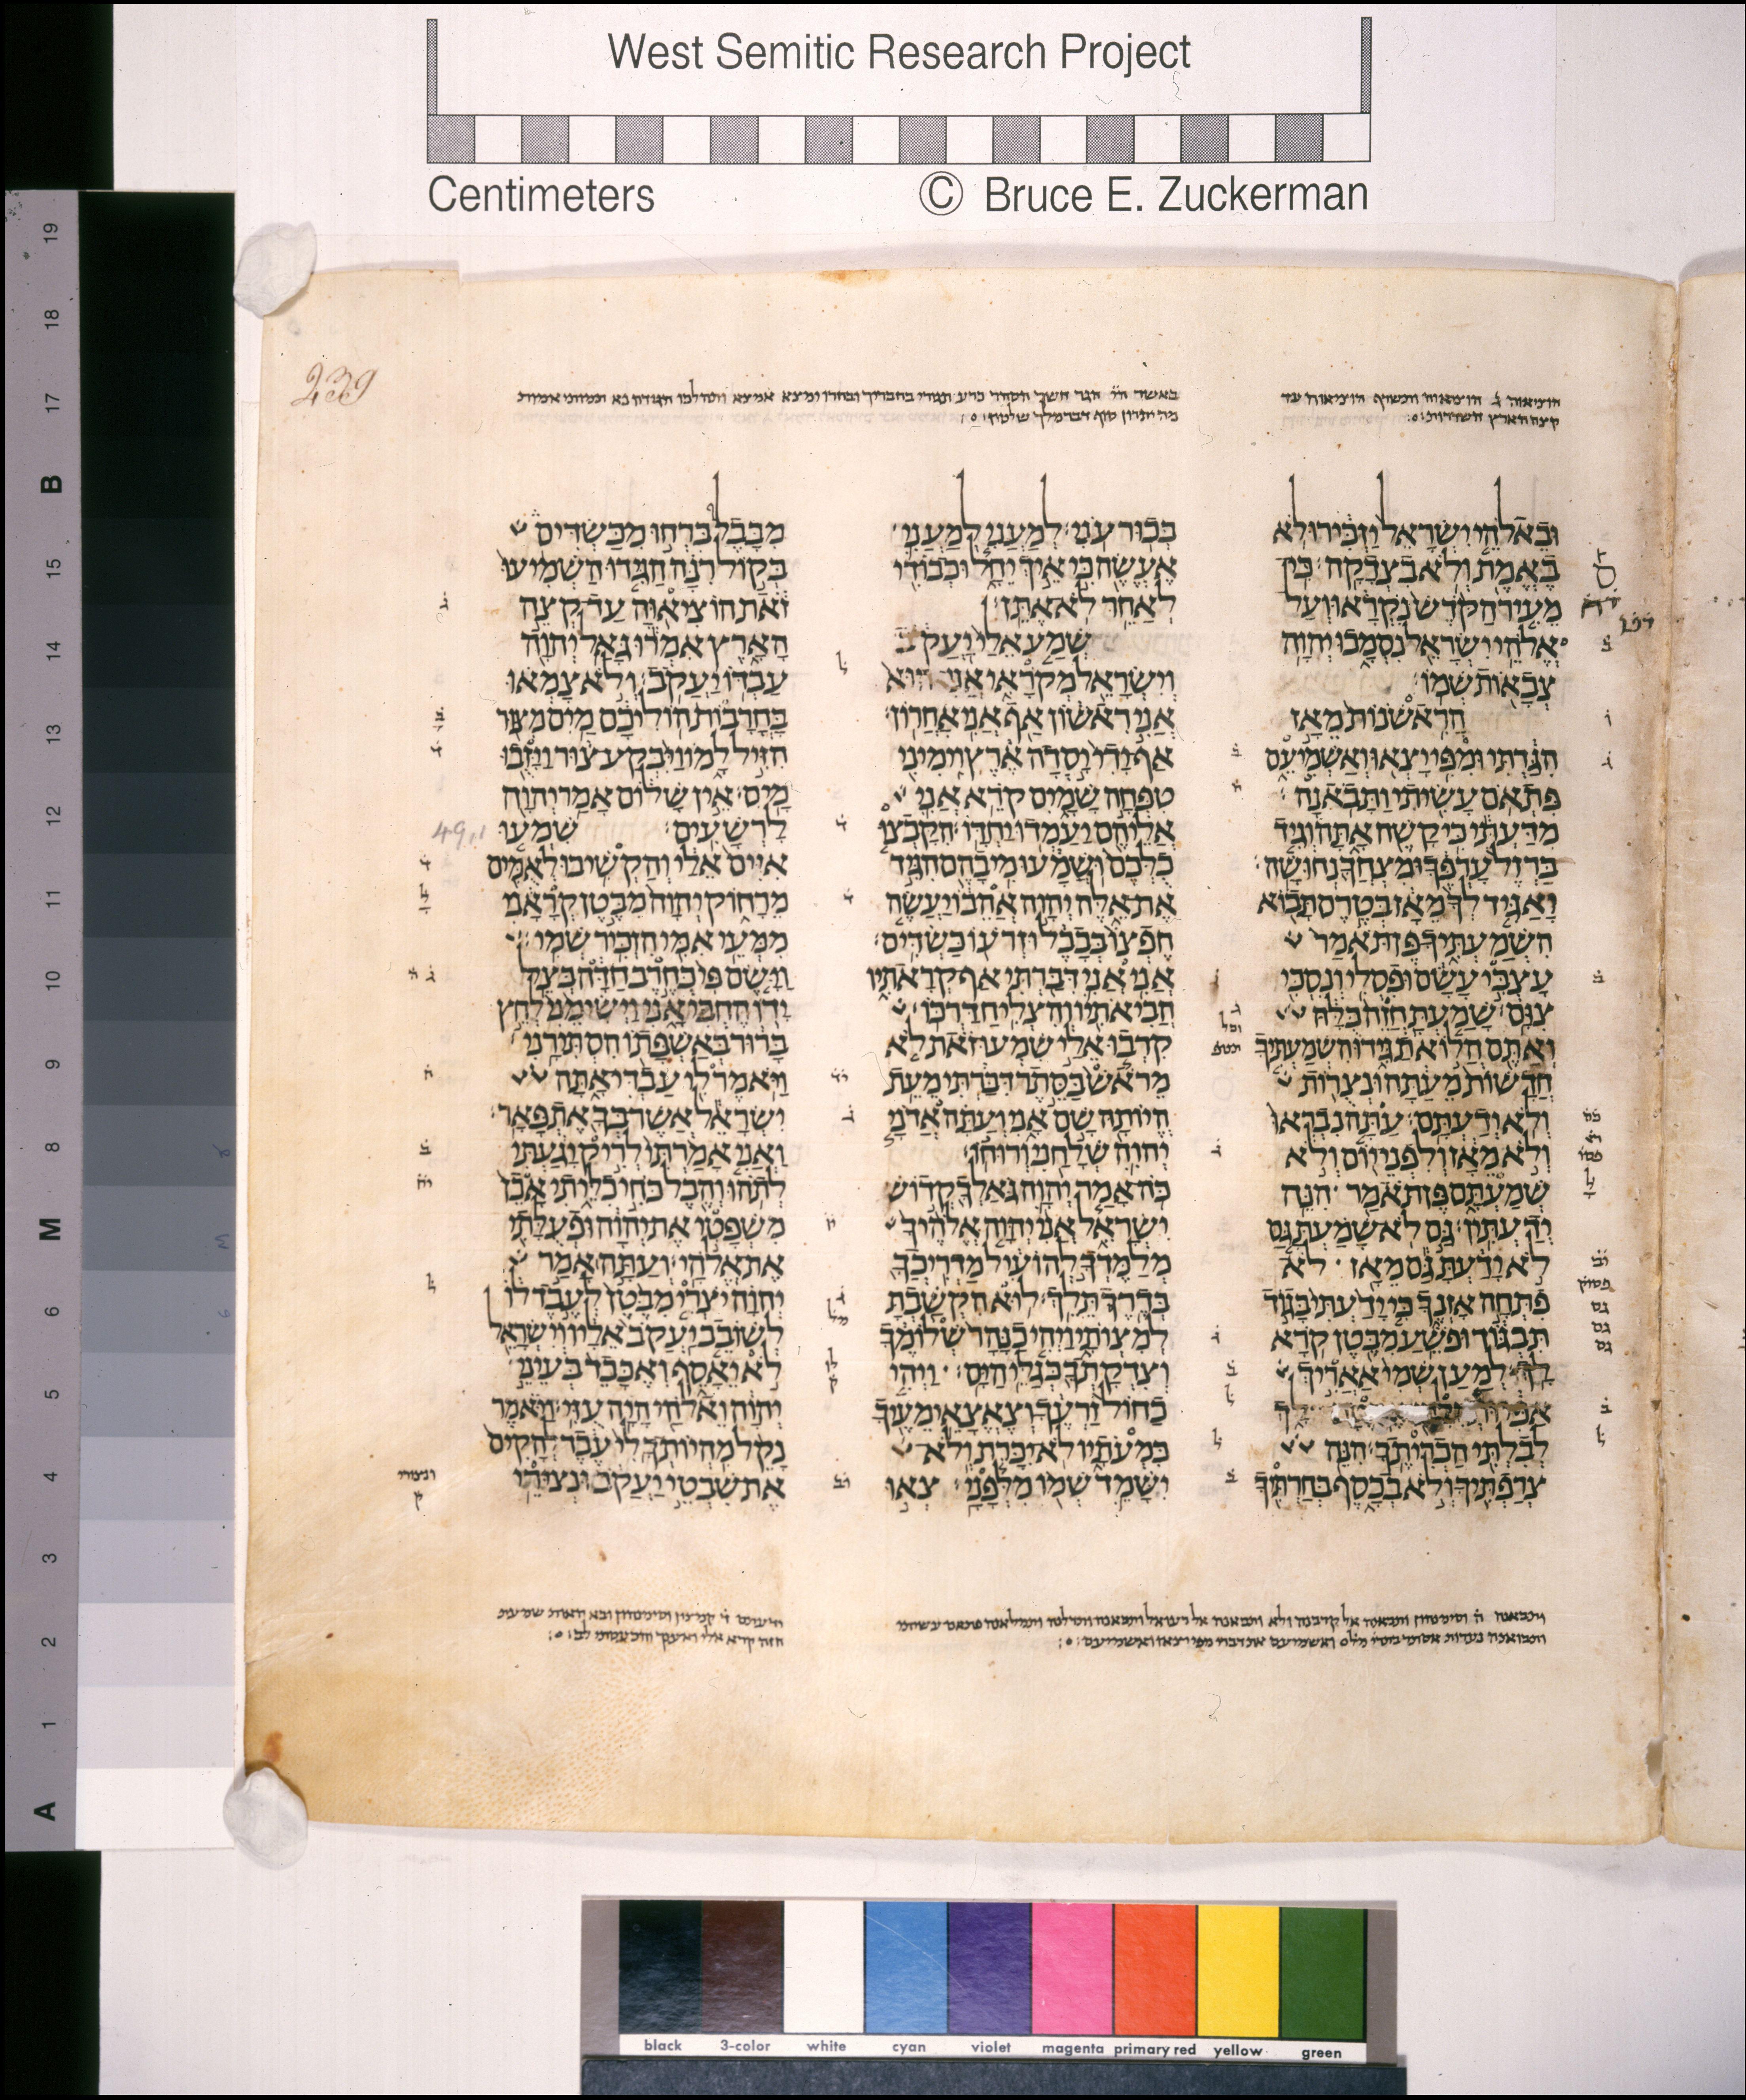 West Semitic Research Project
Centimeters © Bruce E. Zuckerman
239
וּבֵאלֹהֵי יִשְׂרָאֵל יַזְכִּירוּ לֹא
בֶאֱמֶת וְלֹא בִצְדָקָה׃ כִּי
מֵעִיר הַקֹּדֶשׁ נִקְרָאוּ וְעַל
אֱלֹהֵי יִשְׂרָאֵל נִסְמָכוּ יְהוָה
צְבָאוֹת שְׁמוֹ׃
הָרִאשֹׁנוֹת מֵאָז
הִגַּדְתִּי וּמִפִּי יָצְאוּ וְאַשְׁמִיעֵם
פִּתְאֹם עָשִׂיתִי וַתָּבֹאנָה׃
מִדַּעְתִּי כִּי קָשֶׁה אָתָּה וְגִיד
בַּרְזֶל עָרְפֶּךָ וּמִצְחֲךָ נְחוּשָׁה׃
וָאַגִּיד לְךָ מֵאָז בְּטֶרֶם תָּבוֹא
הִשְׁמַעְתִּיךָ פֶּן תֹּאמַר
עָצְבִּי עָשָׂם וּפִסְלִי וְנִסְכִּי
צִוָּם׃ שָׁמַעְתָּ חֲזֵה כֻּלָּהּ
וְאַתֶּם הֲלוֹא תַגִּידוּ הִשְׁמַעְתִּיךָ
חֲדָשׁוֹת מֵעַתָּה וּנְצֻרוֹת
וְלֹא יְדַעְתָּם׃ עַתָּה נִבְרְאוּ
וְלֹא מֵאָז וְלִפְנֵי יוֹם וְלֹא
שְׁמַעְתָּם פֶּן תֹּאמַר הִנֵּה
יְדַעְתִּין׃ גַּם לֹא שָׁמַעְתָּ גַּם
לֹא יָדַעְתָּ גַּם מֵאָז לֹא
פִתְּחָה אָזְנֶךָ כִּי יָדַעְתִּי בָּגוֹד
תִּבְגּוֹד וּפֹשֵׁעַ מִבֶּטֶן קֹרָא
לָךְ׃ לְמַעַן שְׁמִי אַאֲרִיךְ
לָךְ
לְבִלְתִּי הַכְרִיתֶךָ׃ הִנֵּה
צְרַפְתִּיךָ וְלֹא בְכָסֶף בְּחַרְתִּיךָ
בְּכוּר עֹנִי׃ לְמַעֲנִי לְמַעֲנִי
אֶעֱשֶׂה כִּי אֵיךְ יֵחָל וּכְבוֹדִי
לְאַחֵר לֹא אֶתֵּן׃
שְׁמַע אֵלַי יַעֲקֹב
וְיִשְׂרָאֵל מְקֹרָאִי אֲנִי הוּא
אֲנִי רִאשׁוֹן אַף אֲנִי אַחֲרוֹן׃
אַף יָדִי יָסְדָה אֶרֶץ וִימִינִי
טִפְּחָה שָׁמָיִם קֹרֵא אֲנִי
אֲלֵיהֶם יַעַמְדוּ יַחְדָּו׃ הִקָּבְצוּ
כֻלְּכֶם וּשֲׁמָעוּ מִי בָהֶם הִגִּיד
אֶת אֵלֶּה יְהוָה אֲהֵבוֹ יַעֲשֶׂה
חֶפְצוֹ בְּבָבֶל וּזְרֹעוֹ כַּשְׂדִּים׃
אֲנִי אֲנִי דִּבַּרְתִּי אַף קְרָאתִיו
הֲבִיאֹתִיו וְהִצְלִיחַ דַּרְכּוֹ׃
קִרְבוּ אֵלַי שִׁמְעוּ זֹאת לֹא
מֵרֹאשׁ בַּסֵּתֶר דִּבַּרְתִּי מֵעֵת
הֱיוֹתָהּ שָׁם אָנִי וְעַתָּה אֲדֹנָי
יְהוִה שְׁלָחַנִי וְרוּחוֹ׃
כֹּה אָמַר יְהוָה גֹּאַלְךָ קְדוֹשׁ
יִשְׂרָאֵל אֲנִי יְהוָה אֱלֹהֶיךָ
מְלַמֶּדְךָ לְהוֹעִיל מַדְרִיכֲךָ
בְּדֶרֶךְ תֵּלֵךְ׃ לוּא הִקְשַׁבְתָּ
לְמִצְוֹתָי וַיְהִי כַנָּהָר שְׁלוֹמֶךָ
וְצִדְקָתְךָ כְּגַלֵּי הַיָּם׃ וַיְהִי
כַחוֹל זַרְעֶךָ וְצֶאֱצָאֵי מֵעֶיךָ
כִּמְעֹתָיו לֹא יִכָּרֵת וְלֹא
יִשָּׁמֵד שְׁמוֹ מִלְּפָנָי׃ צְאוּ
מִבָּבֶל בִּרְחוּ מִכַּשְׂדִּים
בְּקוֹל רִנָּה הַגִּידוּ הַשְׁמִיעוּ
זֹאת הוֹצִיאוּהָ עַד קְצֵה
הָאָרֶץ אִמְרוּ גָּאַל יְהוָה
עַבְדּוֹ יַעֲקֹב׃ וְלֹא צָמְאוּ
בָּחֳרָבוֹת הוֹלִיכָם מַיִם מִצּוּר
הִזִּיל לָמוֹ וַיִּבְקַע צוּר וַיָּזֻבוּ
מָיִם׃ אֵין שָׁלוֹם אָמַר יְהוָה
לָרְשָׁעִים׃ שִׁמְעוּ
49,1
אִיִּים אֵלַי וְהַקְשִׁיבוּ לְאֻמִּים
מֵרָחוֹק יְהוָה מִבֶּטֶן קְרָאָנִי
מִמְּעֵי אִמִּי הִזְכִּיר שְׁמִי׃
וַיָּשֶׂם פִּי כְּחֶרֶב חַדָּה בְּצֵל
יָדוֹ הֶחְבִּיאָנִי וַיְשִׂימֵנִי לְחֵץ
בָּרוּר בְּאַשְׁפָּתוֹ הִסְתִּירָנִי׃
וַיֹּאמֶר לִי עַבְדִּי אָתָּה
יִשְׂרָאֵל אֲשֶׁר בְּךָ אֶתְפָּאָר׃
וַאֲנִי אָמַרְתִּי לְרִיק יָגַעְתִּי
לְתֹהוּ וְהֶבֶל כֹּחִי כִלֵּיתִי אָכֵן
מִשְׁפָּטִי אֶת יְהוָה וּפְעֻלָּתִי
אֶת אֱלֹהָי׃ וְעַתָּה אָמַר
יְהוָה יֹצְרִי מִבֶּטֶן לְעֶבֶד לוֹ
לְשׁוֹבֵב יַעֲקֹב אֵלָיו וְיִשְׂרָאֵל
לֹא יֵאָסֵף וְאֶכָּבֵד בְּעֵינֵי
יְהוָה וֵאלֹהַי הָיָה עֻזִּי׃ וַיֹּאמֶר
נָקֵל מִהְיוֹתְךָ לִי עֶבֶד לְהָקִים
אֶת שִׁבְטֵי יַעֲקֹב וּנְצִירֵי
black 3-color white cyan violet magenta primary red yellow green
19
18
17
B
16
15
14
13
12
11
10
9
8
M
7
6
5
4
3
2
1
A